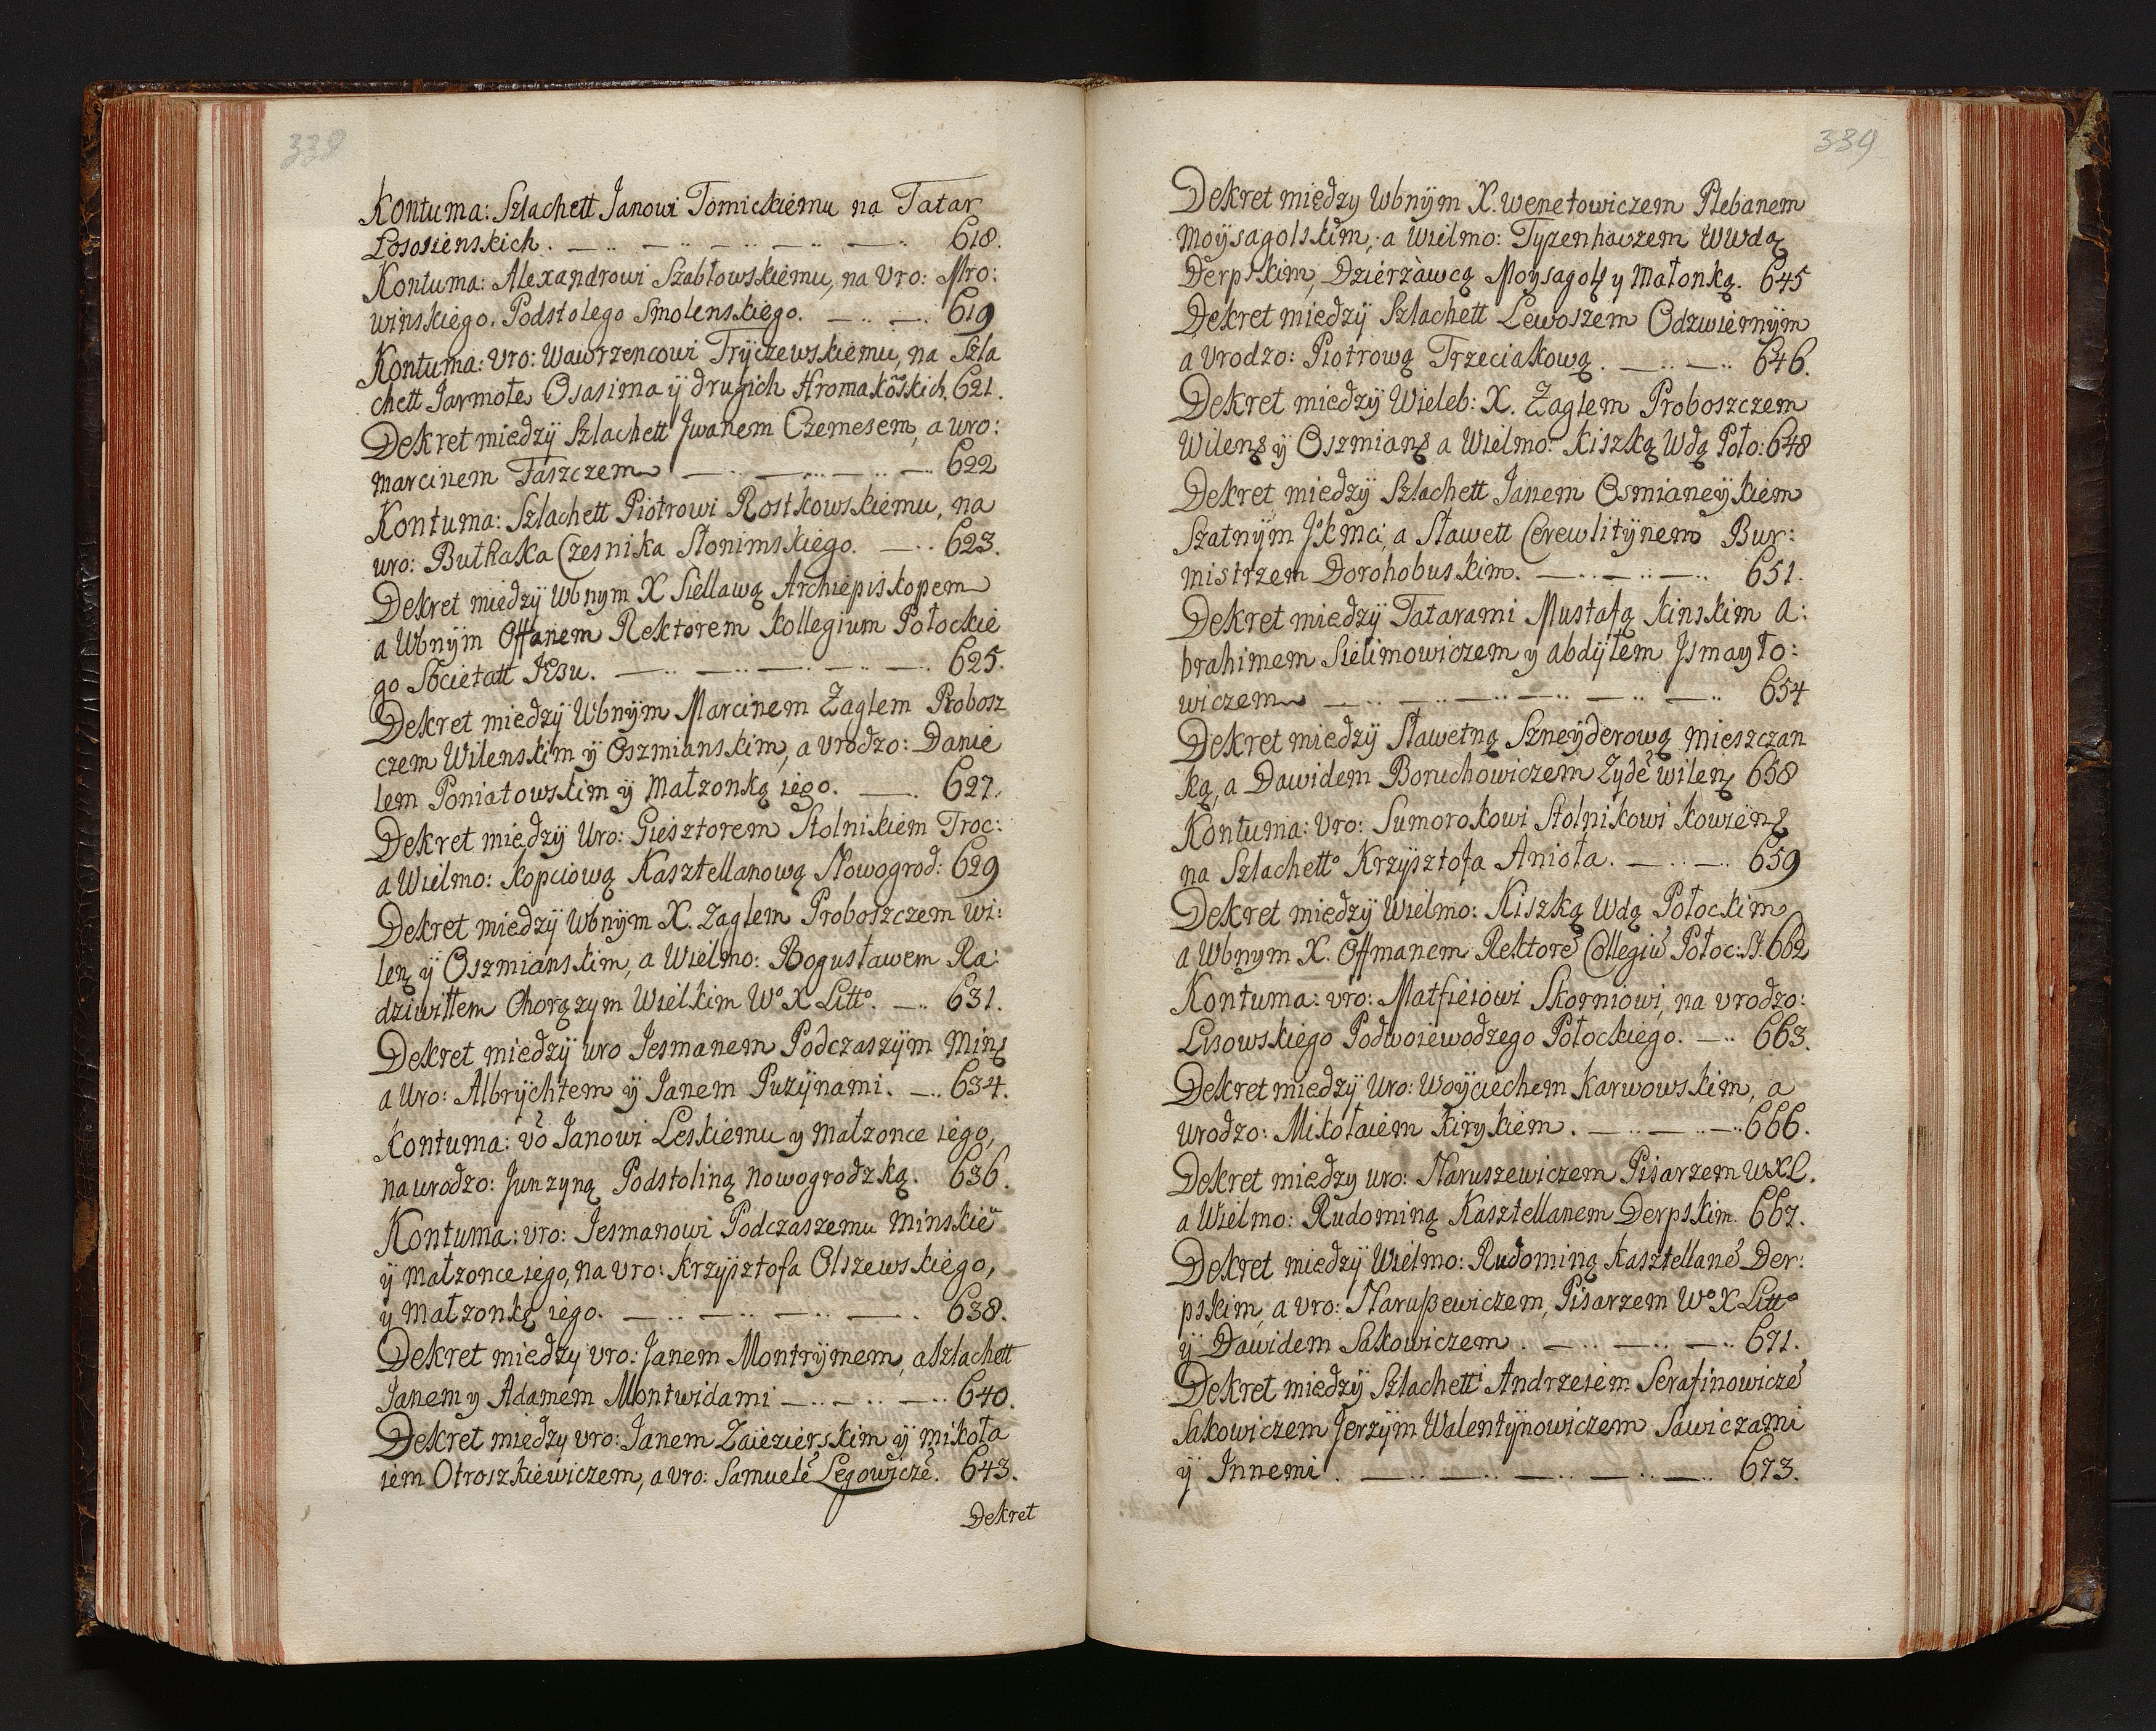 338
Kontuma: Szlachett Janowi Tomickiemu na Tatar
Łososienskich. 618.
Kontuma: Alexandrowi Szabłowskiemu, na Vro: Mro:
winskiego, Podstolego Smolenskiego. 619
Kontuma: Vro: Wawrzencowi Tryczewskiemu, na Szla
chett Jarmołe Osasima ÿ drugich 621.
Dekret miedzÿ Szlachett Jwanem Czemesem, a uro:
Marcinem Taszczem 622
Kontuma: Szlachett Piotrowi Rostkowskiemu, na
uro: Bułhaka Czesnika Słonimskiego. 623.
Dekret miedzÿ Wbnym X Siellawą Archiepiskopem
a Wbnÿm Offanem Rektorem Kollegium Połockie
go Societatt JEsu. 625.
Dekret miedzÿ Wbnÿm Marcinem Zagłem Probosz
czem Wilenskim ÿ Oszmianskim, a vrodzo: Danie
lem Poniatowskim ÿ Małzonką iego. 627.
Dekret miedzÿ Uro: Giesztorem Stolnikiem Troc:
a Wielmo: Kopciową Kasztellanową Nowogrod: 629
Dekret miedzÿ Wbnÿm X. Zagłem Proboszczem Wi:
leṉ ÿ Oszmianskim, a Wielmo: Bogusławem Ra:
dziwiłłem Chorązym Wielkim Wº X Littº. 631.
Dekret miedzÿ uro Jesmanem Podczaszÿm Minʃ
a Uro: Albrÿchtem ÿ Janem Puzÿnami. 634.
Kontuma: vº Janowi Leskiemu y Małzonce iego,
na urodzo: Junzyną Podstoliną Nowogrodzką. 636.
Kontuma: vro: Jesmanowi Podczaszemu Minskieᵘ
ÿ Małzonce iego, na vro: Krzyÿsztofa Olszewskiego,
y Małzonkę iego. 638.
Dekret miedzy vro: Janem Montrÿmem, a Szlachett
Janem y Adamem Montwidami 640.
Dekret miedzy vro: Janem Zaiezierskim ÿ Mikoła
iem Otroszkiewiczem, a vro: Samuelē Legowiczē. 643.
Dekret
339
Dekret miedzy Wbnÿm X. Wenetowiczem Plebanem
Moÿsagolskim, a Wielmo: Tyzenhauzem WWdą
Derpskim, Dzierzawcą Moysagolʃ y Małonką. 645
Dekret miedzÿ Szlachett Lewoszem Odzwiernÿm
a Vrodzo: Piotrową Trzeciakową. 646.
Dekret miedzÿ Wieleb: X. Zagłem Proboszczem
Wilenʃ ÿ Oszmianʃ a Wielmo: Kiszką Wdą Poło: 648
Dekret miedzÿ Szlachett Janem Osmianeÿkiem
Szatnÿm Jº K mci, a Sławett Cerewlitÿnem Bur:
mistrzem Dorohobuskim. 651.
Dekret miedzÿ Tatarami Mustafą Kinskim A:
brahimem Sielimowiczem y Abdÿłem Jsmayło:
wiczem 654
Dekret miedzÿ Sławetną Szneÿderową Mieszczan
ką, a Dawidem Boruchowiczem Zydē Wilenʃ 658
Kontuma: Vro: Sumorokowi Stolnikowi Kowienʃ
na Szlachettº Krzÿsztofa Anioła. 659
Dekret miedzÿ Wielmo: Kiszką Wdą Połockim
a Wbnym X. Offmanem Rektorē Collegiū Połoc: St. 662
Kontuma: vro: Matfieiowi Skorniowi, na vrodzo:
Lisowskiego Podwoiewodzego Połockiego. 663.
Dekret miedzÿ Uro: Woÿciechem Karwowskim, a
urodzo: Mikołaiem Kirykiem. 666.
Dekret miedzy uro: Naruszewiczem Pisarzem WXL.
a Wielmo: Rudominą Kasztellanem Derpskim. 667.
Dekret miedzÿ Wielmo: Rudominą Kasztellanē Der:
pskim, a vro: Narußewiczem, Pisarzem Wº X Littº
ÿ Dawidem Sakowiczem. 671.
Dekret miedzÿ Szlachett Andrzeiem Serafinowiczē
Sakowiczem Jerzÿm Walentÿnowiczem Sawiczami
ÿ Jnnemi. 673.